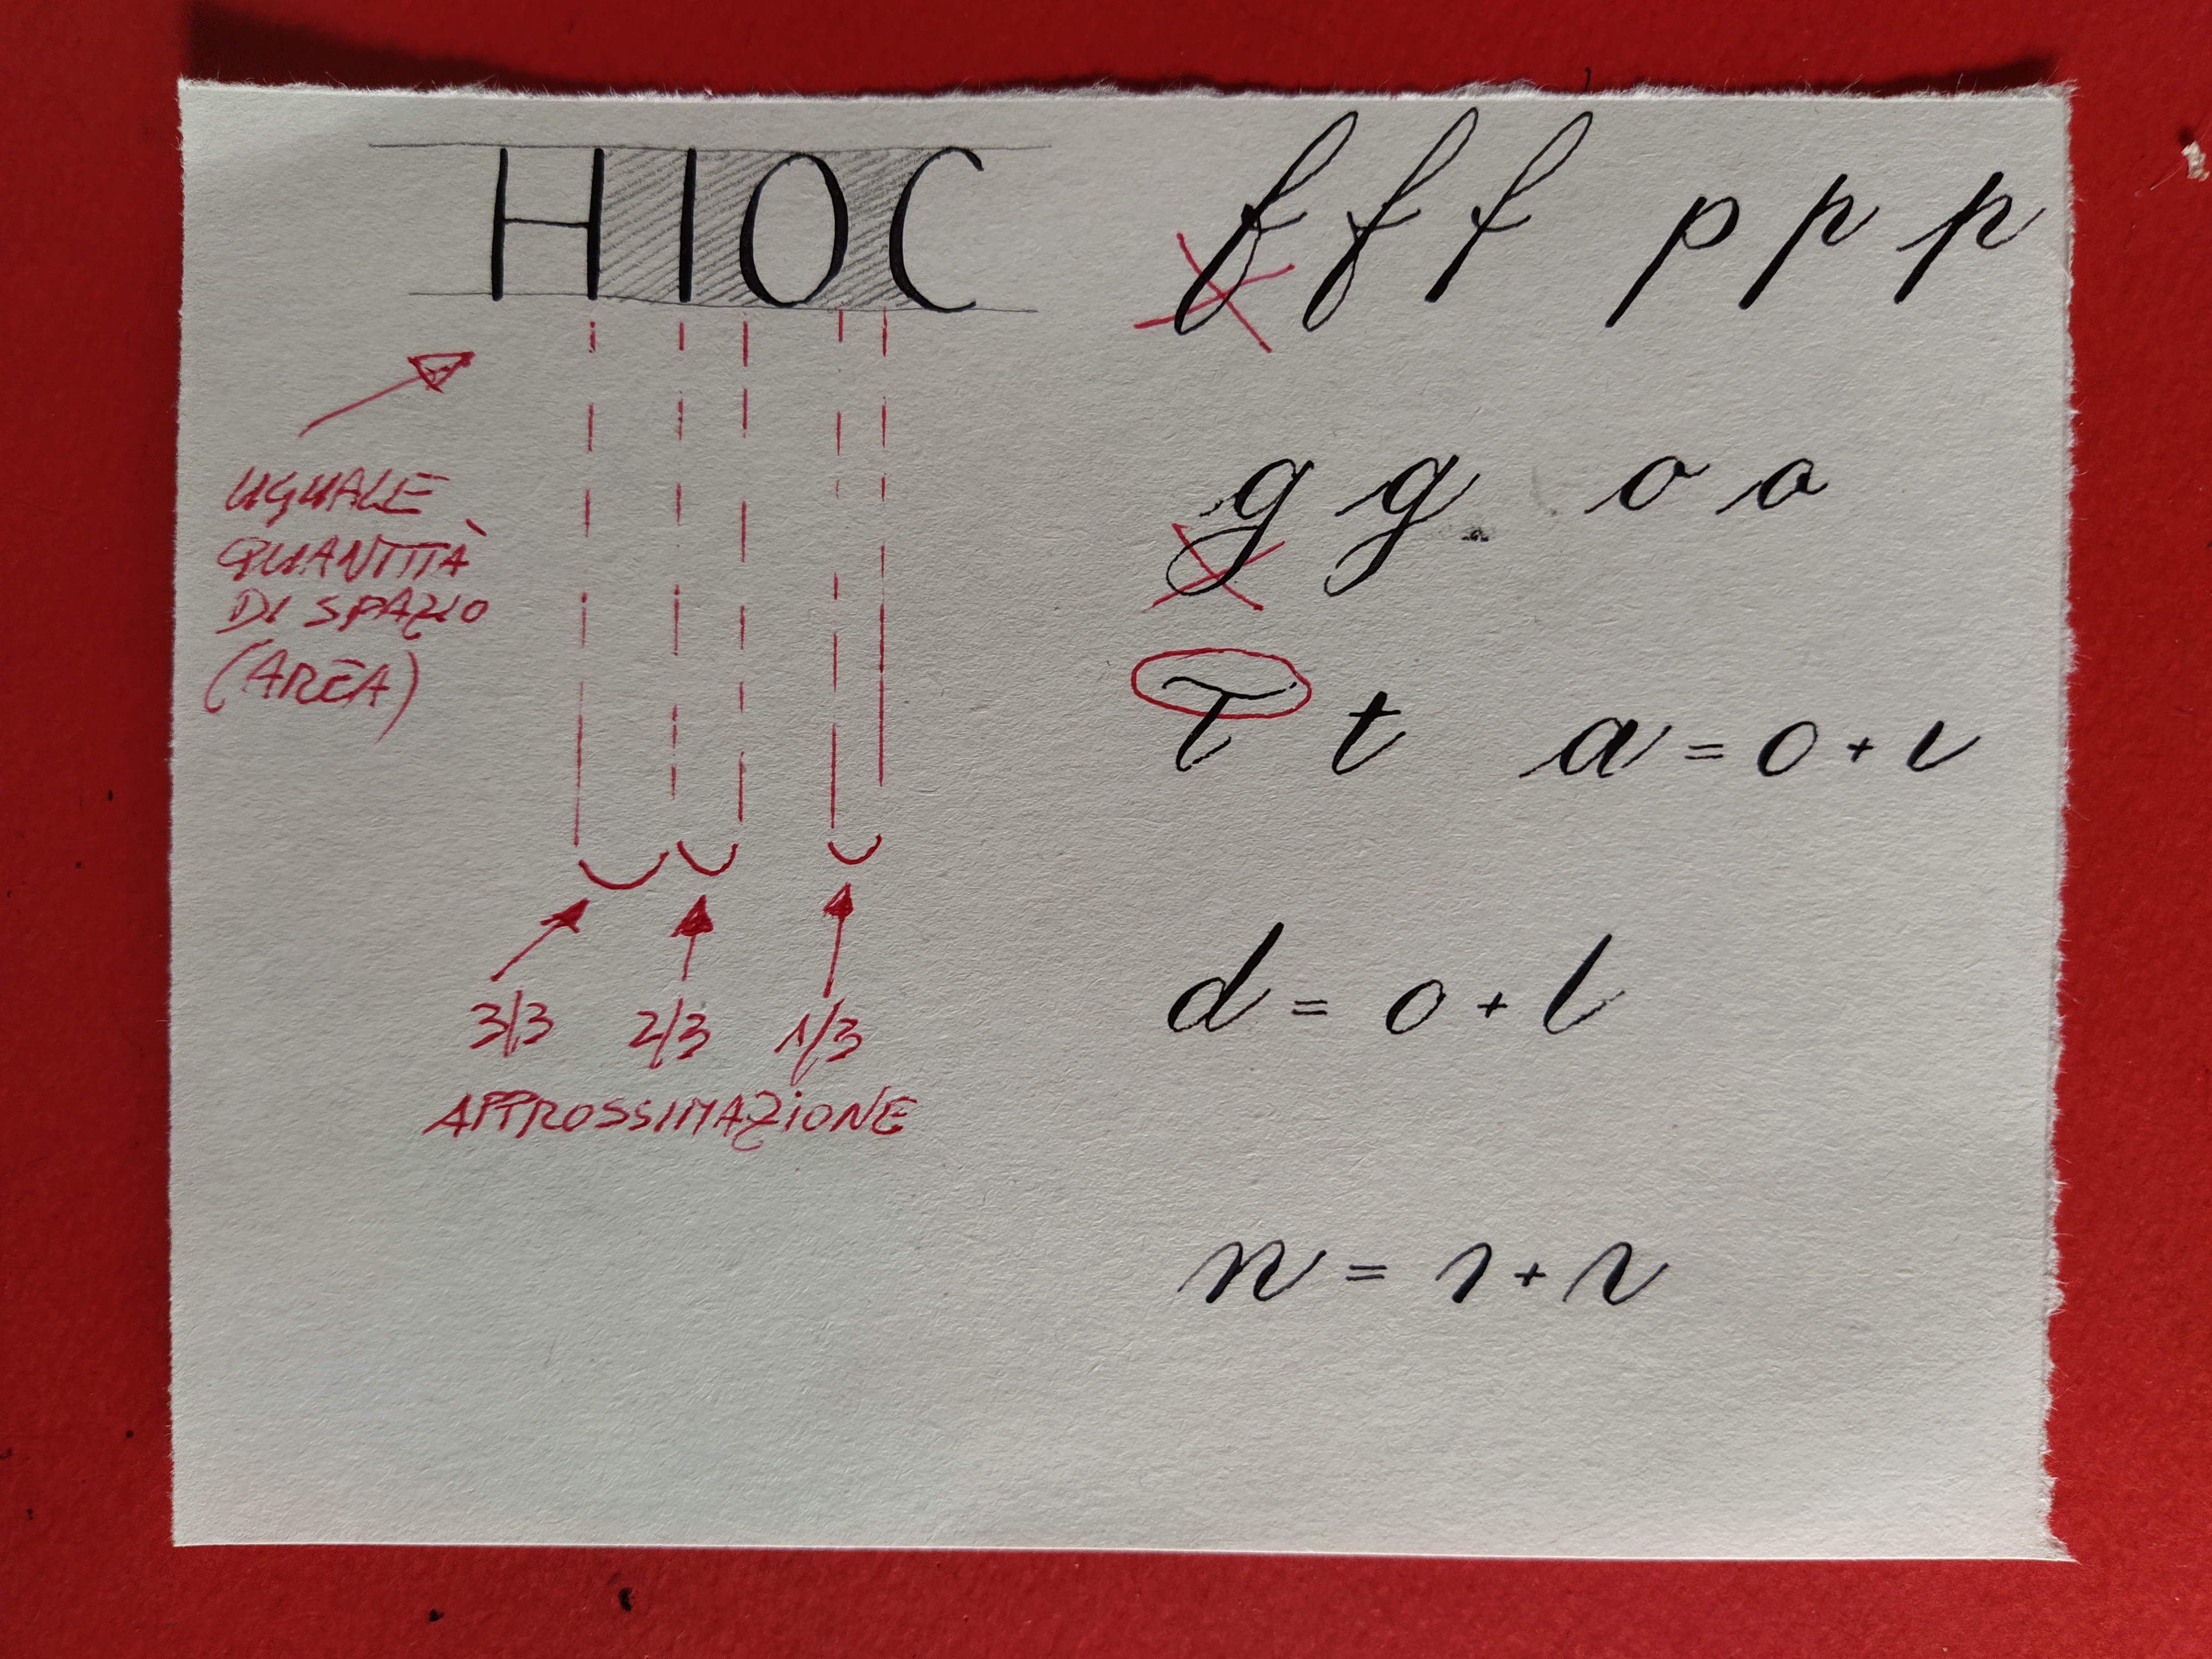 HIOC
UGUALE
QUANTITÀ
DI SPAZIO
(AREA)
3/3 2/3 1/3
APPROSSIMAZIONE
f f f p p p
g g o o
T t a = o + ı
d = o + l
n = ı + ı